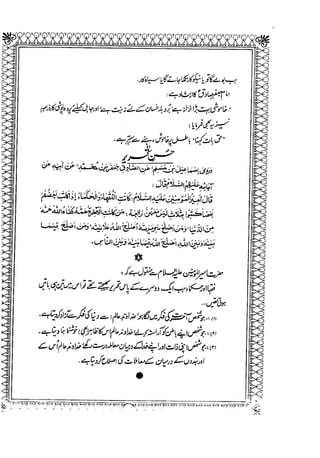 جب بولے گا تو یا نیکوکار لکھا جائے گا یا سیاہ کار۔
امام جعفر صادقؑ کا ارشاد ہے :
"خاموشی بہت بڑا خزانہ ہے بردبار انسان کے لئے زینت ہے اور جاہل کیلئے پردہ پوشی کا ذریعہ
نیز یہ بھی فرمایا :
"حق بات کہنا، باطل پر خاموش رہنے سے بہتر ہے۔
حسن تحریر
وَرَوى اِسْمَاعِيلُ بْنُ مُسْلِمٍ، عَنِ الصَّادِقِ جَعْفَرِ بْنِ مُحَمَّدٍ، عَنْ اَبِيهِ، عَنْ
آبَائِهِ عَلَيْهِمُ السَّلَامُ قَالَ :
قَالَ اَمِيرُ الْمُؤْمِنِينَ عَلَيْهِ السَّلَامُ كَانَتِ الْفُقَهَاءُ وَالْحُكَمَاءُ اِذَا كَاتَبَ بَعْضُهُمْ
بَعْضًا كَتَبُوا بِثَلَاثٍ لَيْسَ مَعَهُنَّ رَابِعَةٌ : مَنْ كَانَتِ الْآخِرَةُ هَمَّهُ كَفَاهُ اللهُ هَمَّهُ
مِنَ الدُّنْيَا وَمَنْ اَصْلَحَ سَرِيرَتَهُ اَصْلَحَ اللهُ عَلَانِيَتَهُ وَمَنْ اَصْلَحَ فِيمَا
بَيْنَهُ وَبَيْنَ اللهِ اَصْلَحَ اللهُ فِيمَا بَيْنَهُ وَبَيْنَ النَّاسِ۔
حضرت امیرالمومنین علیہ السلام سے منقول ہے کہ :
فقہا اور حکما جب ایک دوسرے کے پاس تحریر بھیجتے تھے تو اس میں تین ہی باتیں
ہوتی تھیں۔
(۱)۔ جو شخص آخرت کی فکر میں لگا رہا خداوند عالم اسے دنیا کی فکر سے آزاد کر دیتا ہے۔
(۲)۔ جو شخص اپنے باطن کو آراستہ کرے خداوند عالم اس کا ظاہر بھی خوشنما بنا دیتا ہے۔
(۳)۔ جو شخص اپنی ذات اور اپنے خدا کے درمیان معاملہ درست رکھے خداوند عالم اس کے
اور بندوں کے درمیان کے معاملات کی اصلاح کر دیتا ہے۔